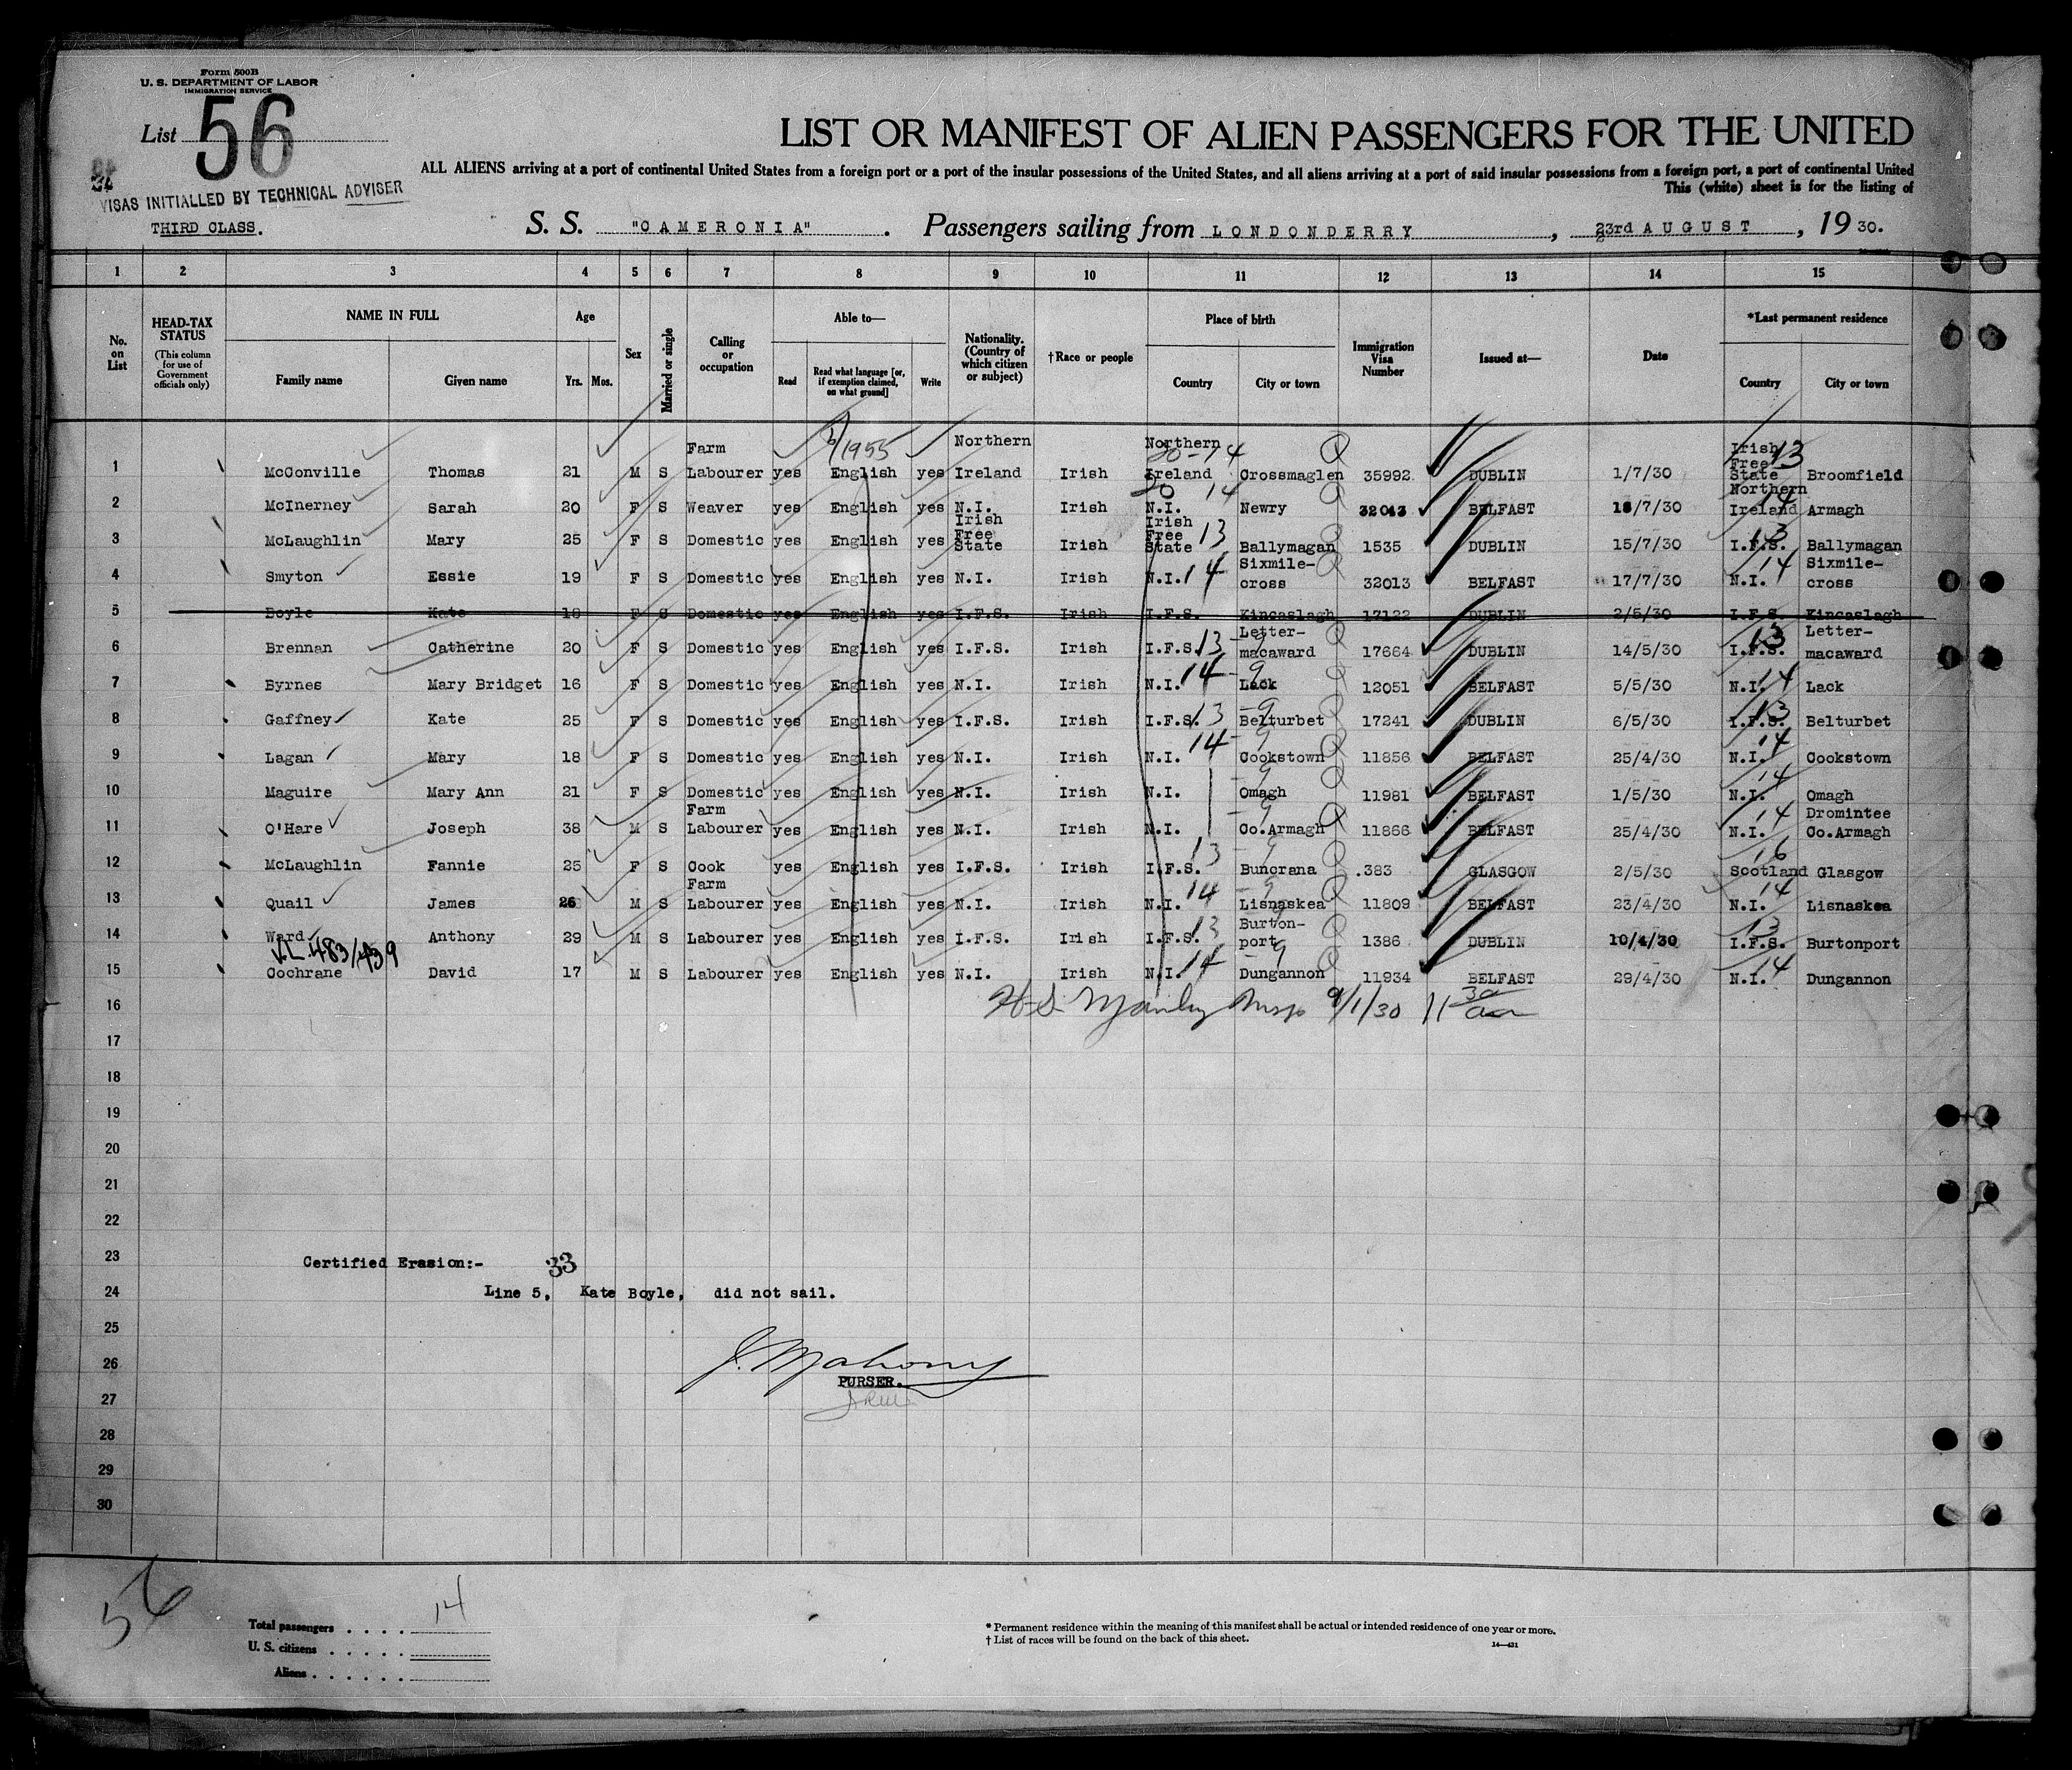 Form 500B
U. S. DEPARTMENT OF LABOR
IMMIGRATION SERVICE
List 56
LIST OR MANIFEST OF ALIEN PASSENGERS FOR THE UNITED
ALL ALIENS arriving at a port of continental United States from a foreign port or a port of the insular possessions of the United States, and all aliens arriving at a port of said insular possessions from a foreign port, a port of continental United
This (white) sheet is for the listing of
VISAS INITIALLED BY TECHNICAL ADVISER
THIRD CLASS.
S. S. "CAMERONIA". Passengers sailing from LONDONDERRY, 23rd AUGUST, 1930.
1 2 3 4 5 6 7 8 9 10 11 12 13 14 15
No. on List
HEAD-TAX STATUS
(This column for use of Government officials only)
NAME IN FULL
Family name Given name
Age
Yrs. Mos.
Sex
Married or single
Calling or occupation
Able to—
Read
Read what language [or, if exemption claimed, on what ground]
Write
Nationality. (Country of which citizen or subject)
†Race or people
Place of birth
Country City or town
Immigration Visa Number
Issued at—
Date
*Last permanent residence
Country City or town
1 McConville Thomas 21 M S Farm Labourer yes English yes Northern Ireland Irish Northern Ireland Crossmaglen 35992 DUBLIN 1/7/30 Irish Free State Broomfield
2 McInerney Sarah 20 F S Weaver yes English yes N.I. Irish N.I. Newry 32043 BELFAST 18/7/30 Northern Ireland Armagh
3 McLaughlin Mary 25 F S Domestic yes English yes Irish Free State Irish Irish Free State 13 Ballymagan 1535 DUBLIN 15/7/30 I.F.S. 13 Ballymagan
4 Smyton Essie 19 F S Domestic yes English yes N.I. Irish N.I. 14 Sixmile-cross 32013 BELFAST 17/7/30 N.I. 14 Sixmile-cross
5 Boyle Kate 18 F S Domestic yes English yes I.F.S. Irish I.F.S. Kincaslagh 17122 DUBLIN 2/5/30 I.F.S. Kincaslagh
6 Brennan Catherine 20 F S Domestic yes English yes I.F.S. Irish I.F.S. 13 Letter-macaward 17664 DUBLIN 14/5/30 I.F.S. 13 Letter-macaward
7 Byrnes Mary Bridget 16 F S Domestic yes English yes N.I. Irish N.I. 14 Lack 12051 BELFAST 5/5/30 N.I. 14 Lack
8 Gaffney Kate 25 F S Domestic yes English yes I.F.S. Irish I.F.S. 13 Belturbet 17241 DUBLIN 6/5/30 I.F.S. 13 Belturbet
9 Lagan Mary 18 F S Domestic yes English yes N.I. Irish N.I. 14 Cookstown 11856 BELFAST 25/4/30 N.I. 14 Cookstown
10 Maguire Mary Ann 21 F S Domestic yes English yes N.I. Irish N.I. Omagh 11981 BELFAST 1/5/30 N.I. 14 Omagh
11 O'Hare Joseph 38 M S Farm Labourer yes English yes N.I. Irish N.I. Co.Armagh 11866 BELFAST 25/4/30 N.I. 14 Dromintee Co.Armagh
12 McLaughlin Fannie 25 F S Cook yes English yes I.F.S. Irish I.F.S. 13 Buncrana 383 GLASGOW 2/5/30 Scotland 16 Glasgow
13 Quail James 26 M S Farm Labourer yes English yes N.I. Irish N.I. 14 Lisnaskea 11809 BELFAST 23/4/30 N.I. 14 Lisnaskea
14 Ward Anthony 29 M S Labourer yes English yes I.F.S. Irish I.F.S. 13 Burton-port 1386 DUBLIN 10/4/30 I.F.S. 13 Burtonport
V.L. 483/439
15 Cochrane David 17 M S Labourer yes English yes N.I. Irish N.I. 14 Dungannon 11934 BELFAST 29/4/30 N.I. 14 Dungannon
16
17
18
19
20
21
22
23 Certified Erasion:- 33
24 Line 5, Kate Boyle, did not sail.
25
26 J. Mahony
PURSER.
27
28
29
30
56
Total passengers . . . . 14
U. S. citizens . . . . .
Aliens . . . . . .
* Permanent residence within the meaning of this manifest shall be actual or intended residence of one year or more.
† List of races will be found on the back of this sheet.
14—431